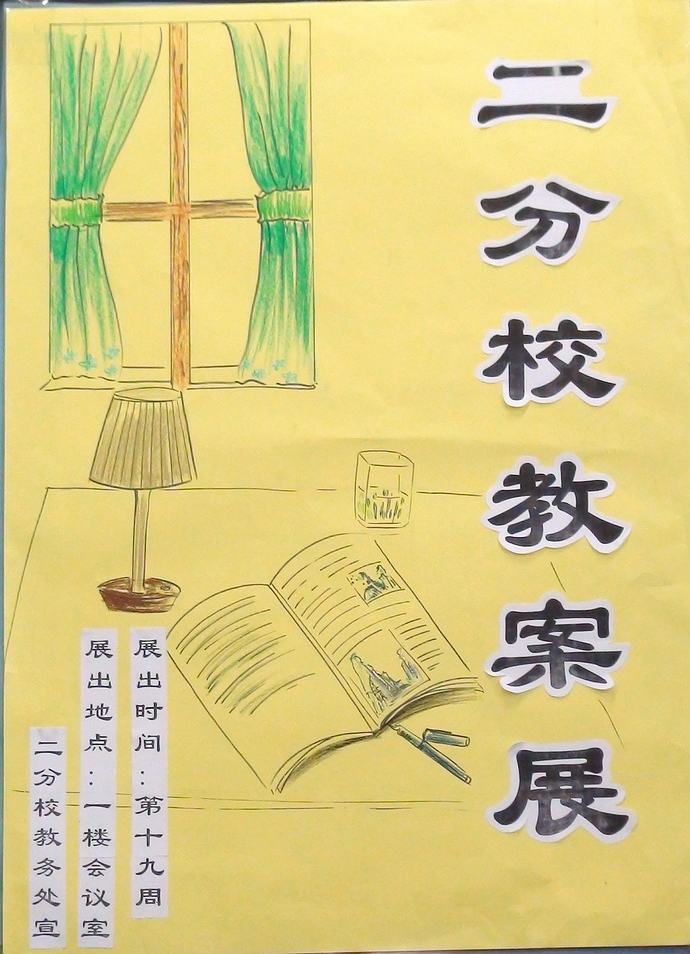 二分校教案展
展出时间：第十九周
展出地点：一楼会议室
二分校教务处宣